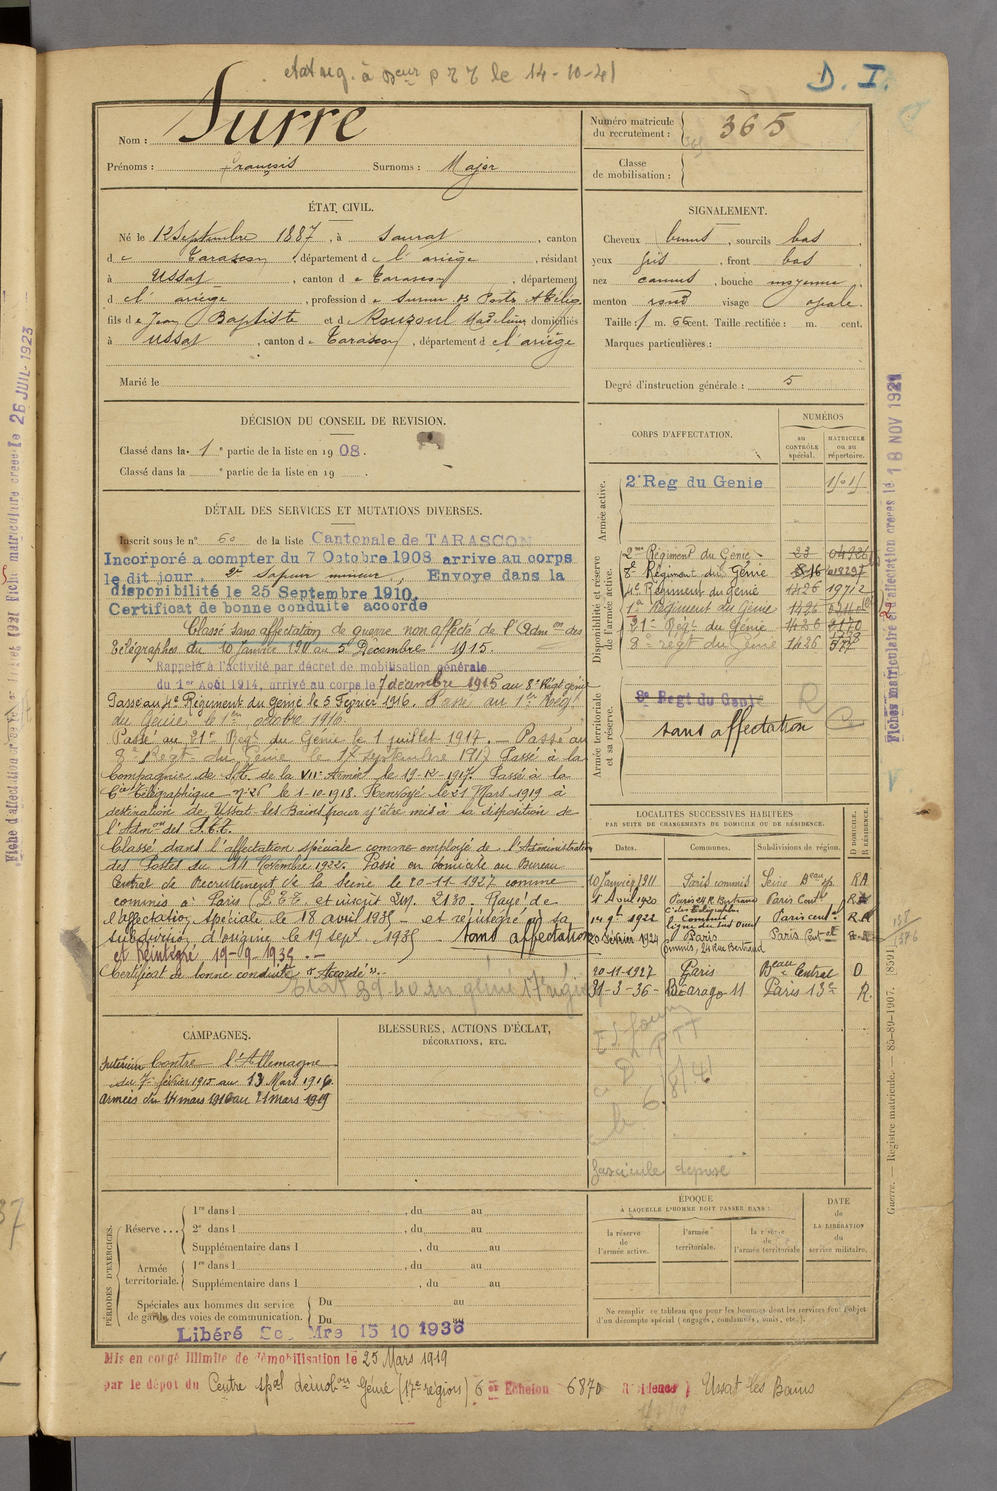 le 14-10-41
D. I.
Nom : Surre
Prénoms : François Surnoms : Major
Numéro matricule du recrutement : 365
Classe de mobilisation :
ÉTAT CIVIL.
Né le 12 Septembre 1887, à Saurat, canton
de Tarascon, département de l'ariège, résidant
à Ussat, canton de Tarascon, département
d el' ariège, profession de Surnum des Postes & Télég.
fils de Jean Baptiste et de Rouzoul Madeleine domiciliés
à Ussat, canton de Tarascon, département d el'ariège
Marié le
SIGNALEMENT.
Cheveux bruns, sourcils bas,
yeux gris, front bas,
nez camus, bouche moyenne,
menton rond visage ovale.
Taille : 1 m. 66 cent. Taille rectifiée : m. cent.
Marques particulières :
Degré d'instruction générale : 5
DÉCISION DU CONSEIL DE REVISION.
Classé dans la 1e partie de la liste en 1908.
Classé dans la e partie de la liste en 19
CORPS D'AFFECTATION.
NUMÉROS
AU CONTRÔLE spécial.
MATRICULE ou au répertoire.
Armée active.
2e Reg du Genie
Disponibilité et réserve de l'armée active.
2me Régiment du Génie 23
8e Régiment du Génie
4e Régiment du génie 1426 19712
1er Régiment du Génie 1426
21e Régt du Génie 1426 2170
8e régt du Génie 1426
Armée territoriale et sa réserve.
8e Regt du Genie
sans affectation
DÉTAIL DES SERVICES ET MUTATIONS DIVERSES.
Inscrit sous le n° 60 de la liste Cantonale de TARASCON
Incorporé a compter du 7 Octobre 1908 arrive au corps
le dit jour, 2e Sapeur mineur, Envoye dans la
disponibilité le 25 Septembre 1910.
Certificat de bonne conduite accorde
Classé sans affectation de guerre non affecté de l'Admon des
Télégraphes du 10 Janvier 1911 au 5 Décembre 1915.
Rappelé à l'activité par décret de mobilisation générale
du 1er Août 1914, arrivé au corps le 7 decembre 1915 au 8e Régt génie
Passé au 4e Régiment du génie le 5 Fevrier 1916. Passé au 1er Régt
du Génie le 1er octobre 1916.
Passé au 21e Regt du Génie le 1 juillet 1917. — Passé au
8e Regt du Génie le 17 septembre 1917 Passé à la
Compagnie de S.T. de la VIIe Armée le 19-12-1917. Passé à la
Cie Télégraphique n°26 le 1-10-1918. Renvoyé le 21 Mars 1919 à
destination de Ussat-les-Bains pour y être mis à la disposition de
l'Admon des P.T.T.
Classé dans l'affectation spéciale comme employé de l'Administration
des Postes du 14 Novembre 1922. Passé en domicile au Bureau
Central de Recrutement de la Seine le 20-11-1927 comme
commis à Paris (P.T.T. et inscrit 2130. Rayé de
l'affectation spéciale le 18 avril 1935 — et réintégré à sa
subdivision d'origine le 19 sept. 1935 — sans affectation
et Réintégré 19-9-1935. —
Certificat de bonne conduite "Accordé".
LOCALITÉS SUCCESSIVES HABITÉES
PAR SUITE DE CHANGEMENTS DE DOMICILE OU DE RÉSIDENCE.
Dates. Communes. Subdivisions de région. D DOMICILE. R RÉSIDENCE.
10 Janvier 1911 Paris commis Seine
1 Avril 1920 Paris 24 R. Bertrand Paris Central
1922 Paris central
20 Février 1924 Paris Commis, 24 Rue Bertrand Paris
20-11-1927 Paris Beau Central D
31-3-36 Bd Arago 11 Paris 13e R.
PTT
6/8/41
fascicule déposé
CAMPAGNES.
Intérieur Contre l'Allemagne
du 7 février 1915 au 13 Mars 1916
Armées du 14 mars 1916 au 21 mars 1919
BLESSURES, ACTIONS D'ÉCLAT,
DÉCORATIONS, ETC.
PÉRIODES D'EXERCICES.
Réserve...
1re dans l , du au
2e dans l , du au
Supplémentaire dans l , du au
Armée territoriale.
1re dans l , du au
Supplémentaire dans l , du au
Spéciales aux hommes du service de garde des voies de communication.
Du au
Du au
ÉPOQUE
À LAQUELLE L'HOMME DOIT PASSER DANS :
la réserve de l'armée active.
l'armée territoriale.
la réserve de l'armée territoriale
DATE DE LA LIBÉRATION du service militaire.
Ne remplir ce tableau que pour les hommes dont les services font l'objet
d'un décompte spécial (engagés, condamnés, omis, etc.).
Libéré Mre 15 10 1936
Mis en congé illimité de démobilisation le 25 Mars 1919
par le dépot du Centre spal démobon Génie (17e région) 6er Echelon 6870 Résidence Ussat-les Bains
Fiche matriculaire creee le 26 JUIL 1923
Fiches matriculaire et affectation creees le 18 NOV 1921
Guerre. — Registre matricule. — 85-89-1907. [8591]